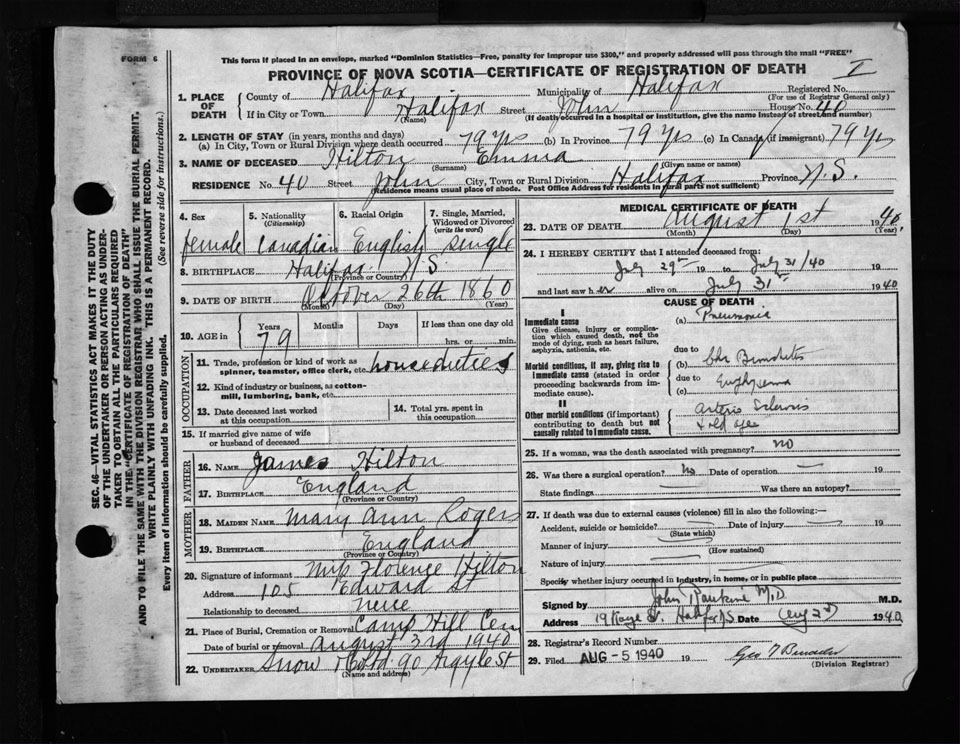 FORM 6
This form if placed in an envelope, marked "Dominion Statistics—Free, penalty for improper use $300," and properly addressed will pass through the mail "FREE"
PROVINCE OF NOVA SCOTIA—CERTIFICATE OF REGISTRATION OF DEATH
1. PLACE OF DEATH
County of Halifax Municipality of Halifax Registered No.
(For use of Registrar General only)
If in City or Town Halifax Street John House No. 40
(Name) (If death occurred in a hospital or institution, give the name instead of street and number)
2. LENGTH OF STAY (in years, months and days)
(a) In City, Town or Rural Division where death occurred 79 yrs (b) In Province 79 yrs (c) In Canada (if immigrant) 79 yrs
3. NAME OF DECEASED Hilton Emma
(Surname) (Given name or names)
RESIDENCE No. 40 Street John City, Town or Rural Division Halifax Province N.S.
(Residence means usual place of abode. Post Office Address for residents in rural parts not sufficient)
4. Sex female
5. Nationality (Citizenship) Canadian
6. Racial Origin English
7. Single, Married, Widowed or Divorced (write the word) single
8. BIRTHPLACE Halifax N S
(Province or Country)
9. DATE OF BIRTH October 26th 1860
(Month) (Day) (Year)
10. AGE in Years 79 Months Days If less than one day old
hrs. or min.
OCCUPATION
11. Trade, profession or kind of work as spinner, teamster, office clerk, etc. house duties
12. Kind of industry or business, as cotton-mill, lumbering, bank, etc.
13. Date deceased last worked at this occupation
14. Total yrs. spent in this occupation
15. If married give name of wife or husband of deceased
FATHER
16. NAME James Hilton
17. BIRTHPLACE England
MOTHER
18. MAIDEN NAME Mary Ann Rogers
19. BIRTHPLACE England
(Province or Country)
20. Signature of informant Miss Florence Hilton
Address 105 Edward St
Relationship to deceased niece
21. Place of Burial, Cremation or Removal Camp Hill Cem
Date of burial or removal August 3rd 1940
22. UNDERTAKER Snow & Co Ltd 90 Argyle St
(Name and address)
MEDICAL CERTIFICATE OF DEATH
23. DATE OF DEATH August 1st 1940
(Month) (Day) (Year)
24. I HEREBY CERTIFY that I attended deceased from
July 29th 19 to July 31/40 19
and last saw her alive on July 31st 1940
CAUSE OF DEATH
I
Immediate cause
Give disease, injury or complication which caused death, not the mode of dying, such as heart failure, asphyxia, asthenia, etc.
(a) Pneumonia
due to
Morbid conditions, if any, giving rise to immediate cause (stated in order proceeding backwards from immediate cause).
(b) Chr Bronchitis
due to
(c) Emphysema
II
Other morbid conditions (if important) contributing to death but not causally related to immediate cause.
Arterio Sclerosis
& old age
25. If a woman, was the death associated with pregnancy? no
26. Was there a surgical operation? No Date of operation — 19
State findings Was there an autopsy?
27. If death was due to external causes (violence) fill in also the following:—
Accident, suicide or homicide? Date of injury 19
(State which)
Manner of injury
(How sustained)
Nature of injury
Specify whether injury occurred in industry, in home, or in public place
Signed by John Rankine M.D. M.D.
Address 19 Kaye St. Halifax N.S. Date Aug 2nd 1940
28. Registrar's Record Number
29. Filed AUG - 5 1940 19
(Division Registrar)
SEC. 46—VITAL STATISTICS ACT MAKES IT THE DUTY
OF THE UNDERTAKER OR PERSON ACTING AS UNDER-
TAKER TO OBTAIN ALL THE PARTICULARS REQUIRED
IN THE "CERTIFICATE OF REGISTRATION OF DEATH"
AND TO FILE THE SAME WITH THE DIVISION REGISTRAR WHO SHALL ISSUE THE BURIAL PERMIT.
WRITE PLAINLY WITH UNFADING INK. THIS IS A PERMANENT RECORD.
Every item of information should be carefully supplied. (See reverse side for instructions.)